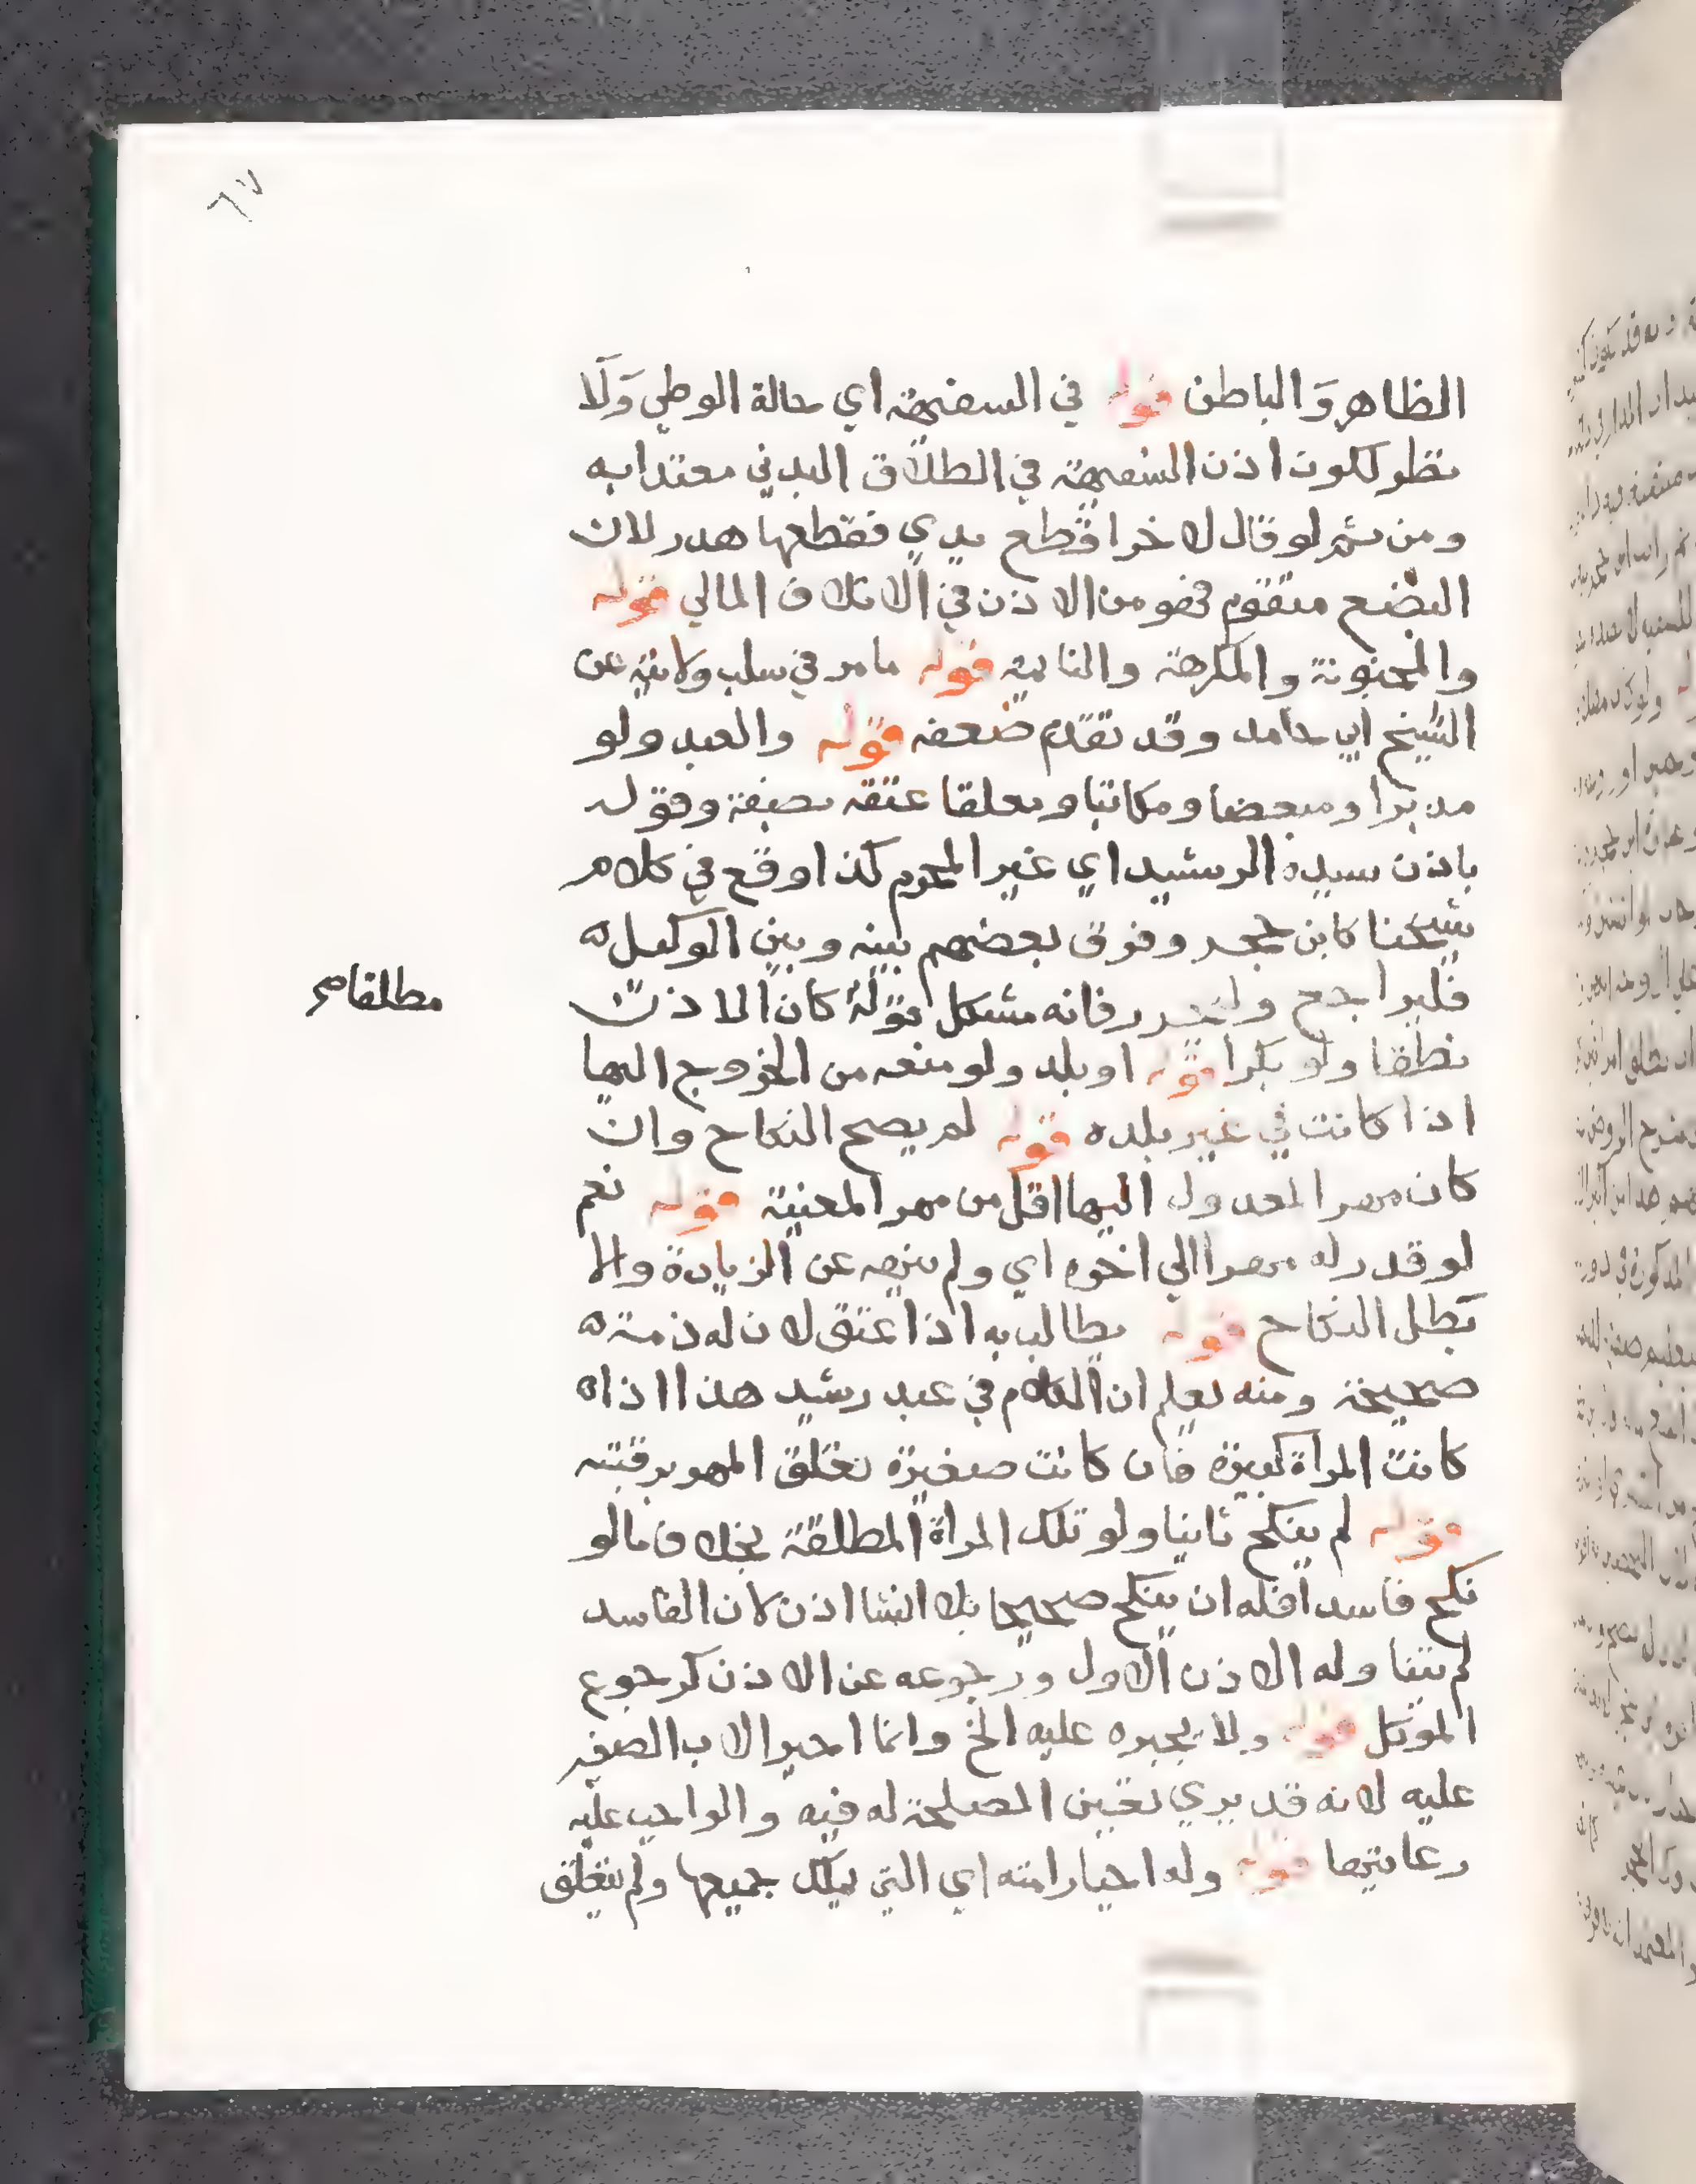 ٦٧
الظاهر والباطن قوله في السفيهة اي حالة الوطي ولا
نظر لكون اذن السفيهة في الطلاق البدني معتدا به
ومن ثم لو قال لاخر اقطع يدي فقطعها هدر لان
البضع متقوم فهو من الاذن في الاتلاف المالي قوله
والمجنونة والمكرهة والنايمة قوله ما مر في سلب ولايته عن
الشيخ ابي حامد وقد تقدم ضعفه قوله والعبد ولو
مدبرا ومبعضا ومكاتبا ومعلقا عتقه بصفة وقوله
باذن سيده الرشيد اي غير المحرم كذا وقع في كلام
شيخنا كابن حجر وفرق بعضهم بينه وبين الوكيل ه
فليراجع وليحرر فانه مشكل قوله كان الاذن
مطلقا صح
نطقا ولو بكرا قوله او بلد ولو منعه من الخروج اليها
اذا كانت في غير بلده قوله لم يصح النكاح وان
كان مهر المعدول اليها اقل من مهر المعنية قوله نعم
لو قدر له مهرا الي اخره اي ولم ينهه عن الزيادة والا
بطل النكاح قوله يطالب به اذا عتق لان له ذمة ه
صحيحة ومنه يعلم ان الكلام في عبد رشيد هذا اذا ه
كانت المراة كبيرة فان كانت صغيرة تعلق المهر برقبته
قوله لم ينكح ثانيا ولو تلك المراة المطلقة بخلاف ما لو
نكح فاسدا فله ان ينكح صحيحا بلا انشا اذن لان الفاسد
لم يتنا وله الاذن الاول ورجوعه عن الاذن كرجوع
الموكل قوله ولا يجبره عليه الخ وانما اجبر الاب الصغير
عليه لانه قد يري تعين المصلحة له فيه والواجب عليه
رعايتها قوله وله اجبار امته اي التي يملك جميعها ولم يتعلق